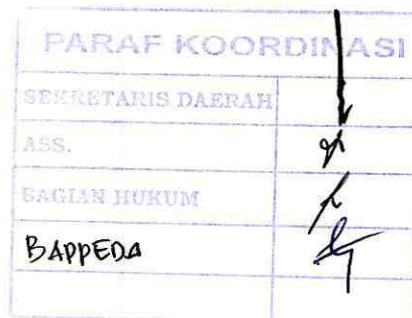 PARAF KOORDINASI
SEKRETARIS DAERAH
ASS.
BAGIAN HUKUM
BAPPEDA